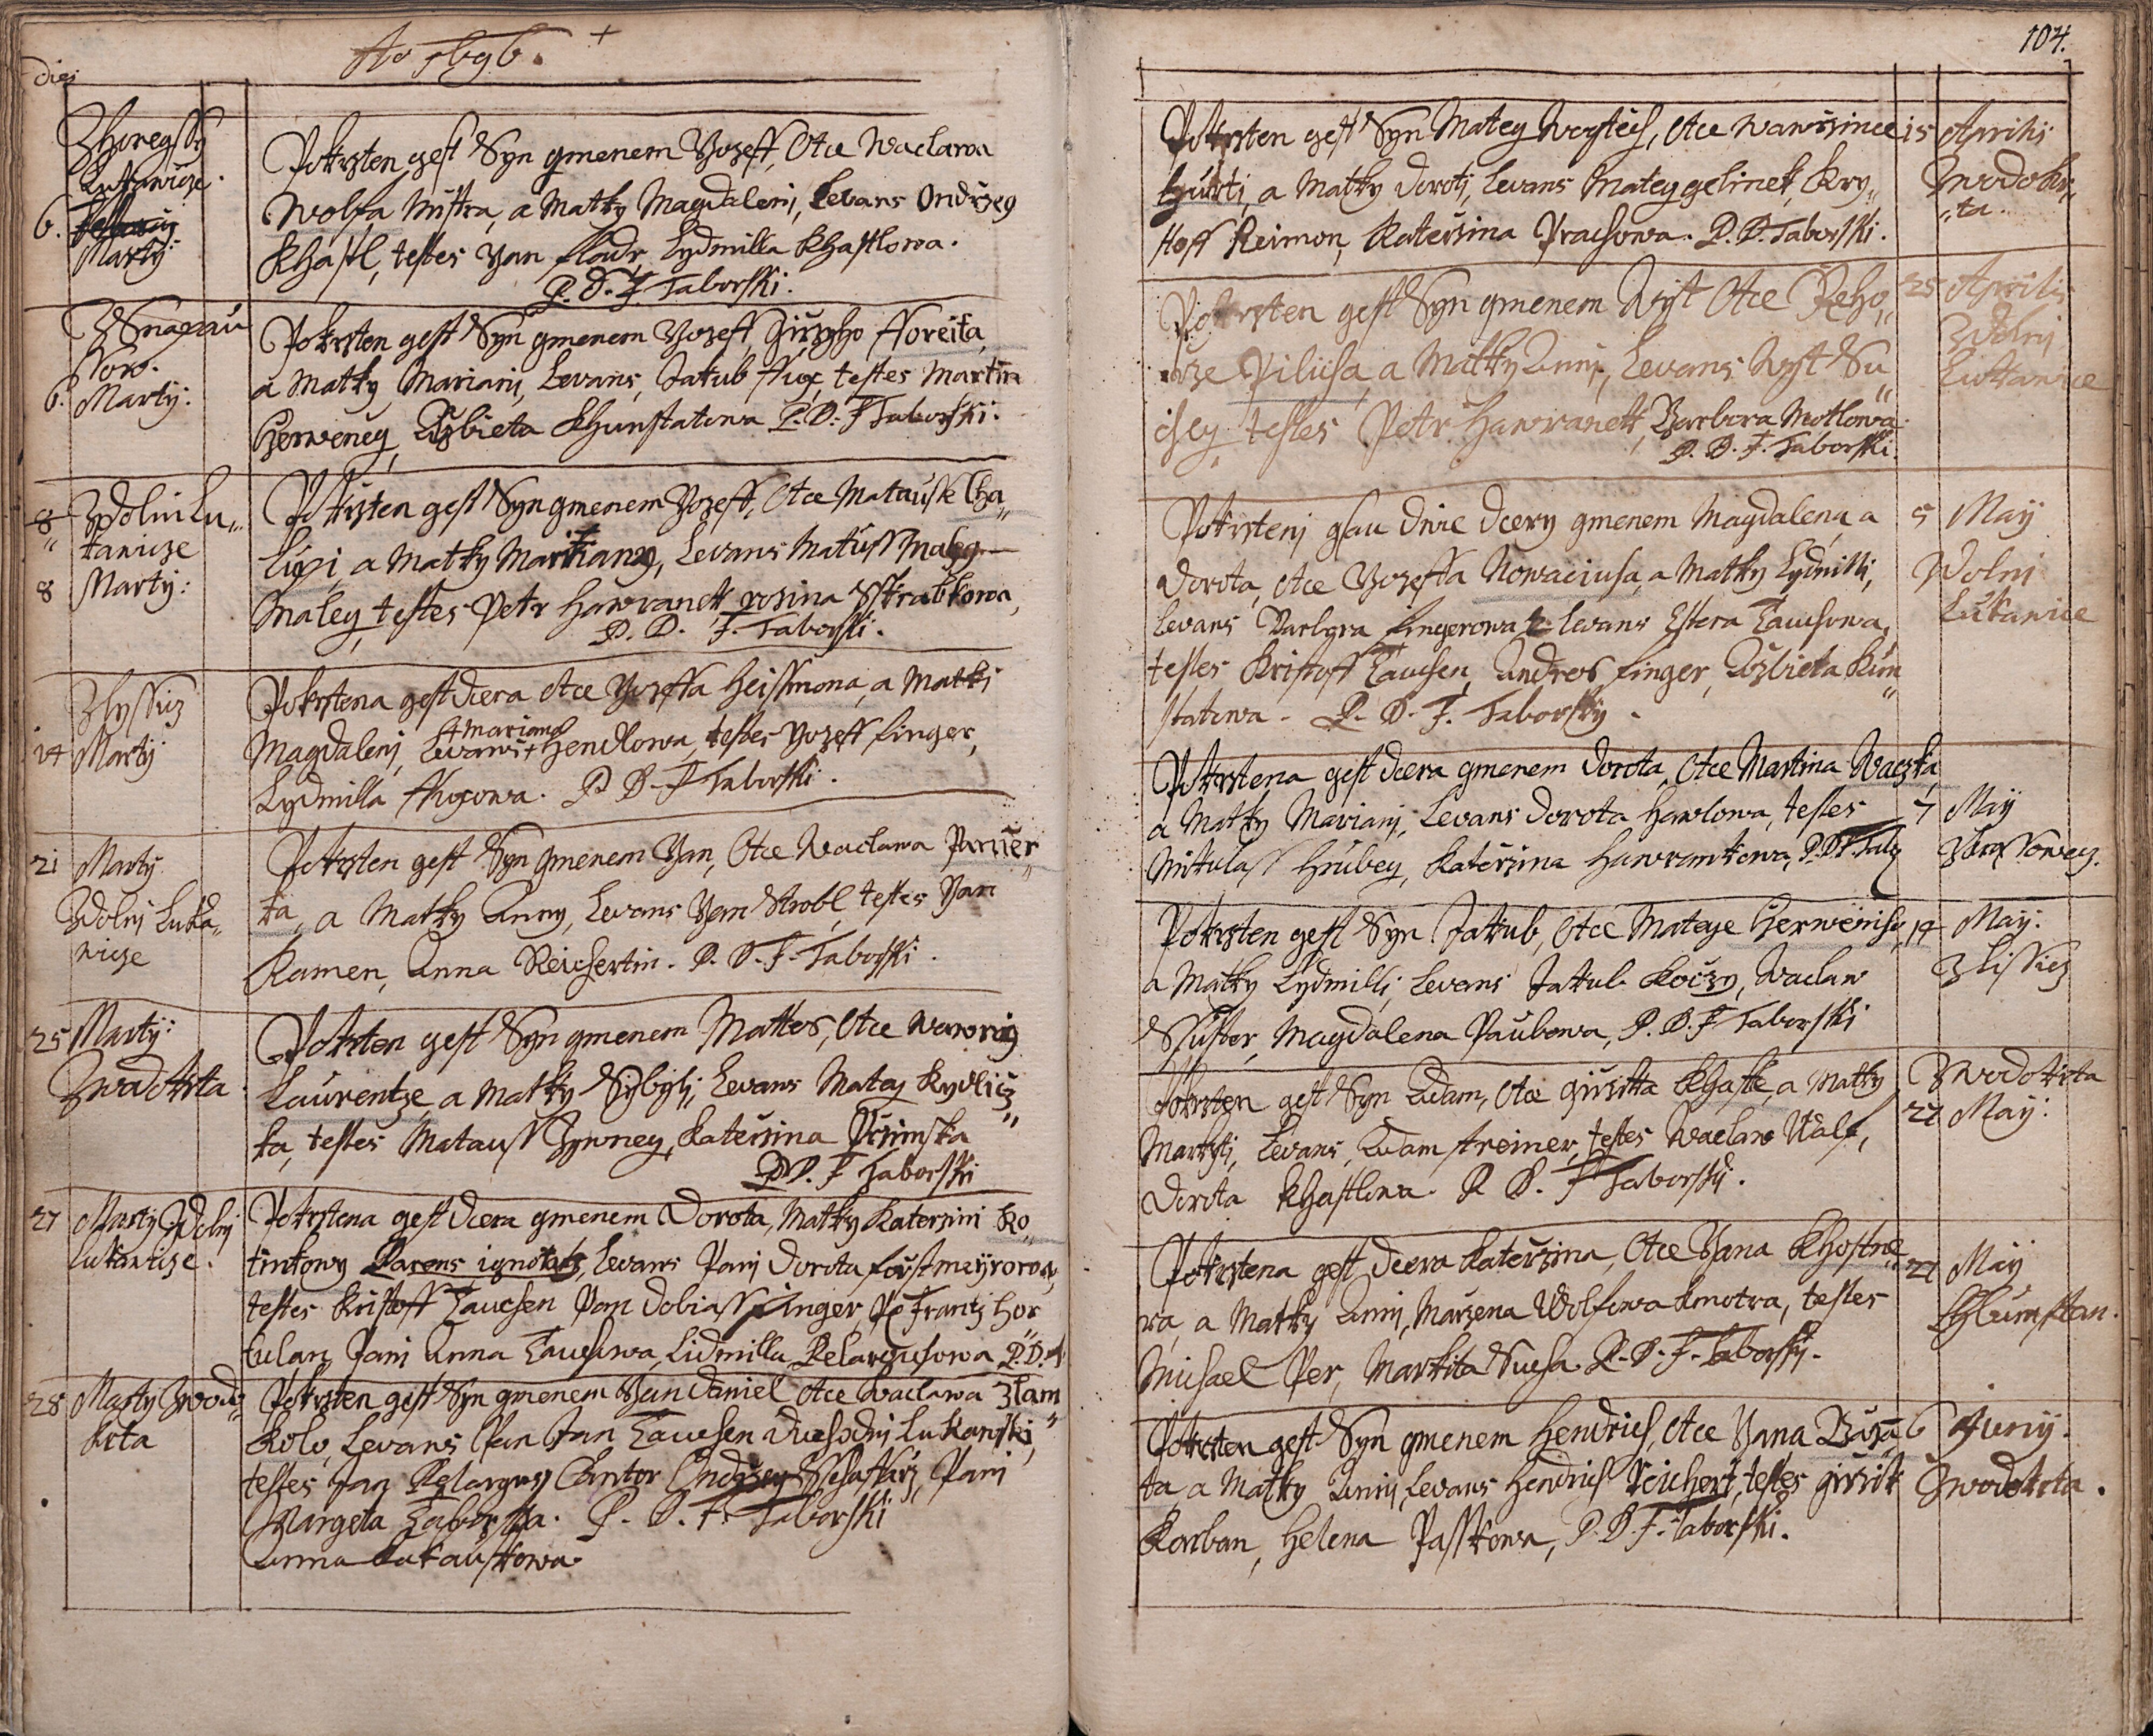 Ao 1696. +
dies
Zhoregssy
Lukawicze.
6.
Marty:
Pokrzten gest Syn gmenem Yozeff, Otce Waclawa
Wolfa Mistra, a Matky Magdaleni, Levans Ondrzeg
Khastl, testes Yan flodr, Lydmilla Khastlowa.
P. D. F Taborski.
Now.
6. Marty:
Pokrzten gest Syn gmenem Yozeff, Girzyho Floreita,
a Matky Mariany, Levans, Jakub flux, testes Martin
Czerweney, Alzbieta Khunstatowa P. D. F Taborski.
8 Zdolni Lu„
kawicze
8 Marty:
Pokrzten gest Syn gmenem Yozeff, Otce Matausse Cha„
lupi, a Matky Mariany, Levans Matuss Maley
Maley, testes Petr Hawranek, rosina Sskrabkowa,
P. D. F. Taborski.
Zlyssicz
14 Marty
Pokrztena gest dcera Otce Yozeffa Heissmona, a Matki
Mariana
Magdaleni, Levans + Hendlowa, testes Yozeff finger,
Lydmilla fluxowa. P D F Taborski.
21 Marty
Zdolni Luka„
wicze
Pokrzten gest Syn gmenem Yan, Otce Waclawa Paruer„
ka, a Matky Anny, Levans Yan Strobl, testes Yan
Kamen, Anna Reichertin. P. D. F. Taborski.
25 Marty:
Zwodokrta.
Pokrten gest Syn gmenem Mattes, Otce Wawrzin
Laurentze, a Matky Sybyli, Levans Matej Kydlicz„
ka, testes Matauss Zywney, Katerzina Przimska
P. D. F Taborski
27 Marty Zdolni
Lukawicze.
Pokrztena gest dcera gmenem Dorota, Matky Katerzini Ko„
tinkowy Parens ignotus, Levans Pani Dorota forstmeyrowa,
testes Kristoff Tauchen Pan Dobiass finger, P: Frantz Hor
tulan, Pani Anna Tauchowa, Lidmilla Pelargusowa P. D. F
28 Marty Zwodo„
krta
Pokrzten gest Syn gmenem Yan Daniel Otce Waclawa Zlam
Kolo, Levans Pan Jan Tauchen Duchodni Lukawski,
testes Jan Pelargus Cantor Ondrzey Schaffarz, Pani
Margeta Taborska. P. D. F. Taborski
Anna Lukauskowa.
104.
Pokrzten gest Syn Matey Woytech, Otce Wawrzince
Hurti, a Matky Doroti, Levans Matey gelinek, Kry„
stoff Reimon, Katerzina Prachowa. P. D. Taborski.
15 Aprilis
Zwodokr„
„ta.
Pokrzten gest Syn gmenem Wyt Otce Rzeho„
rze Pilucha, a Matky Anny, Levans Wyt Su„
chey, testes Petr Hawranek, Barbora Motlowa
P. D. F. Taborski.
25 Aprilis
Zdolni
Lukawice
Pokrzteni gsau dwie dcery gmenem Magdalena, a
Dorota, Otce Yozeffa Nowaciusa, a Matky Lydmilli,
Levans Barbora fingerowa 2 levans Estera Tauchowa,
testes Kristoff Tauchen, Andres finger, Alzbieta Kun„
statowa. P. D. F. Taborsky.
5 May
Zdolni
Lukawice
Pokrztena gest dcera gmenem Dorota, Otce Martina Waczka,
a Matky Mariany, Levans Dorota Hawlowa, testes
Mikulass Hrubey, Katerzina Hawrankowa, P. D. F. Tab
7 May
Zkrassowecz.
Pokrzten gest Syn Jakub, Otce Mateye Czerweniho,
a Matky Lydmilli, Levans Jakub Koczy, Waclaw
Sschuster, Magdalena Paubowa, P. D. F Taborski
14 May.
Zlissicz
Pokrzten gest Syn Adam, Otce Girzika Khastle, a Matky
Markyti, Levans, Adam streiner, testes Waclaw Walf,
Dorota Khastlowa. P. D. F Taborsky.
Zwodokrta
22 May:
Pokrztena gest dcera Katerzina, Otce Yana Khostne„
ra, a Matky Anny, Marzena Wolfowa kmotra, testes
Michael Per, Markita Sucha. P. D. F. Taborsky.
22 May
Chlumstan.
Pokrzten gest Syn gmenem Hendrich, Otce Yana
ta, a Matky Anny, Levans Hendrich Reichert, testes girzik
Korban, Helena Passkowa, P. D. F. Taborski.
6 Juny.
Zwodokrta.